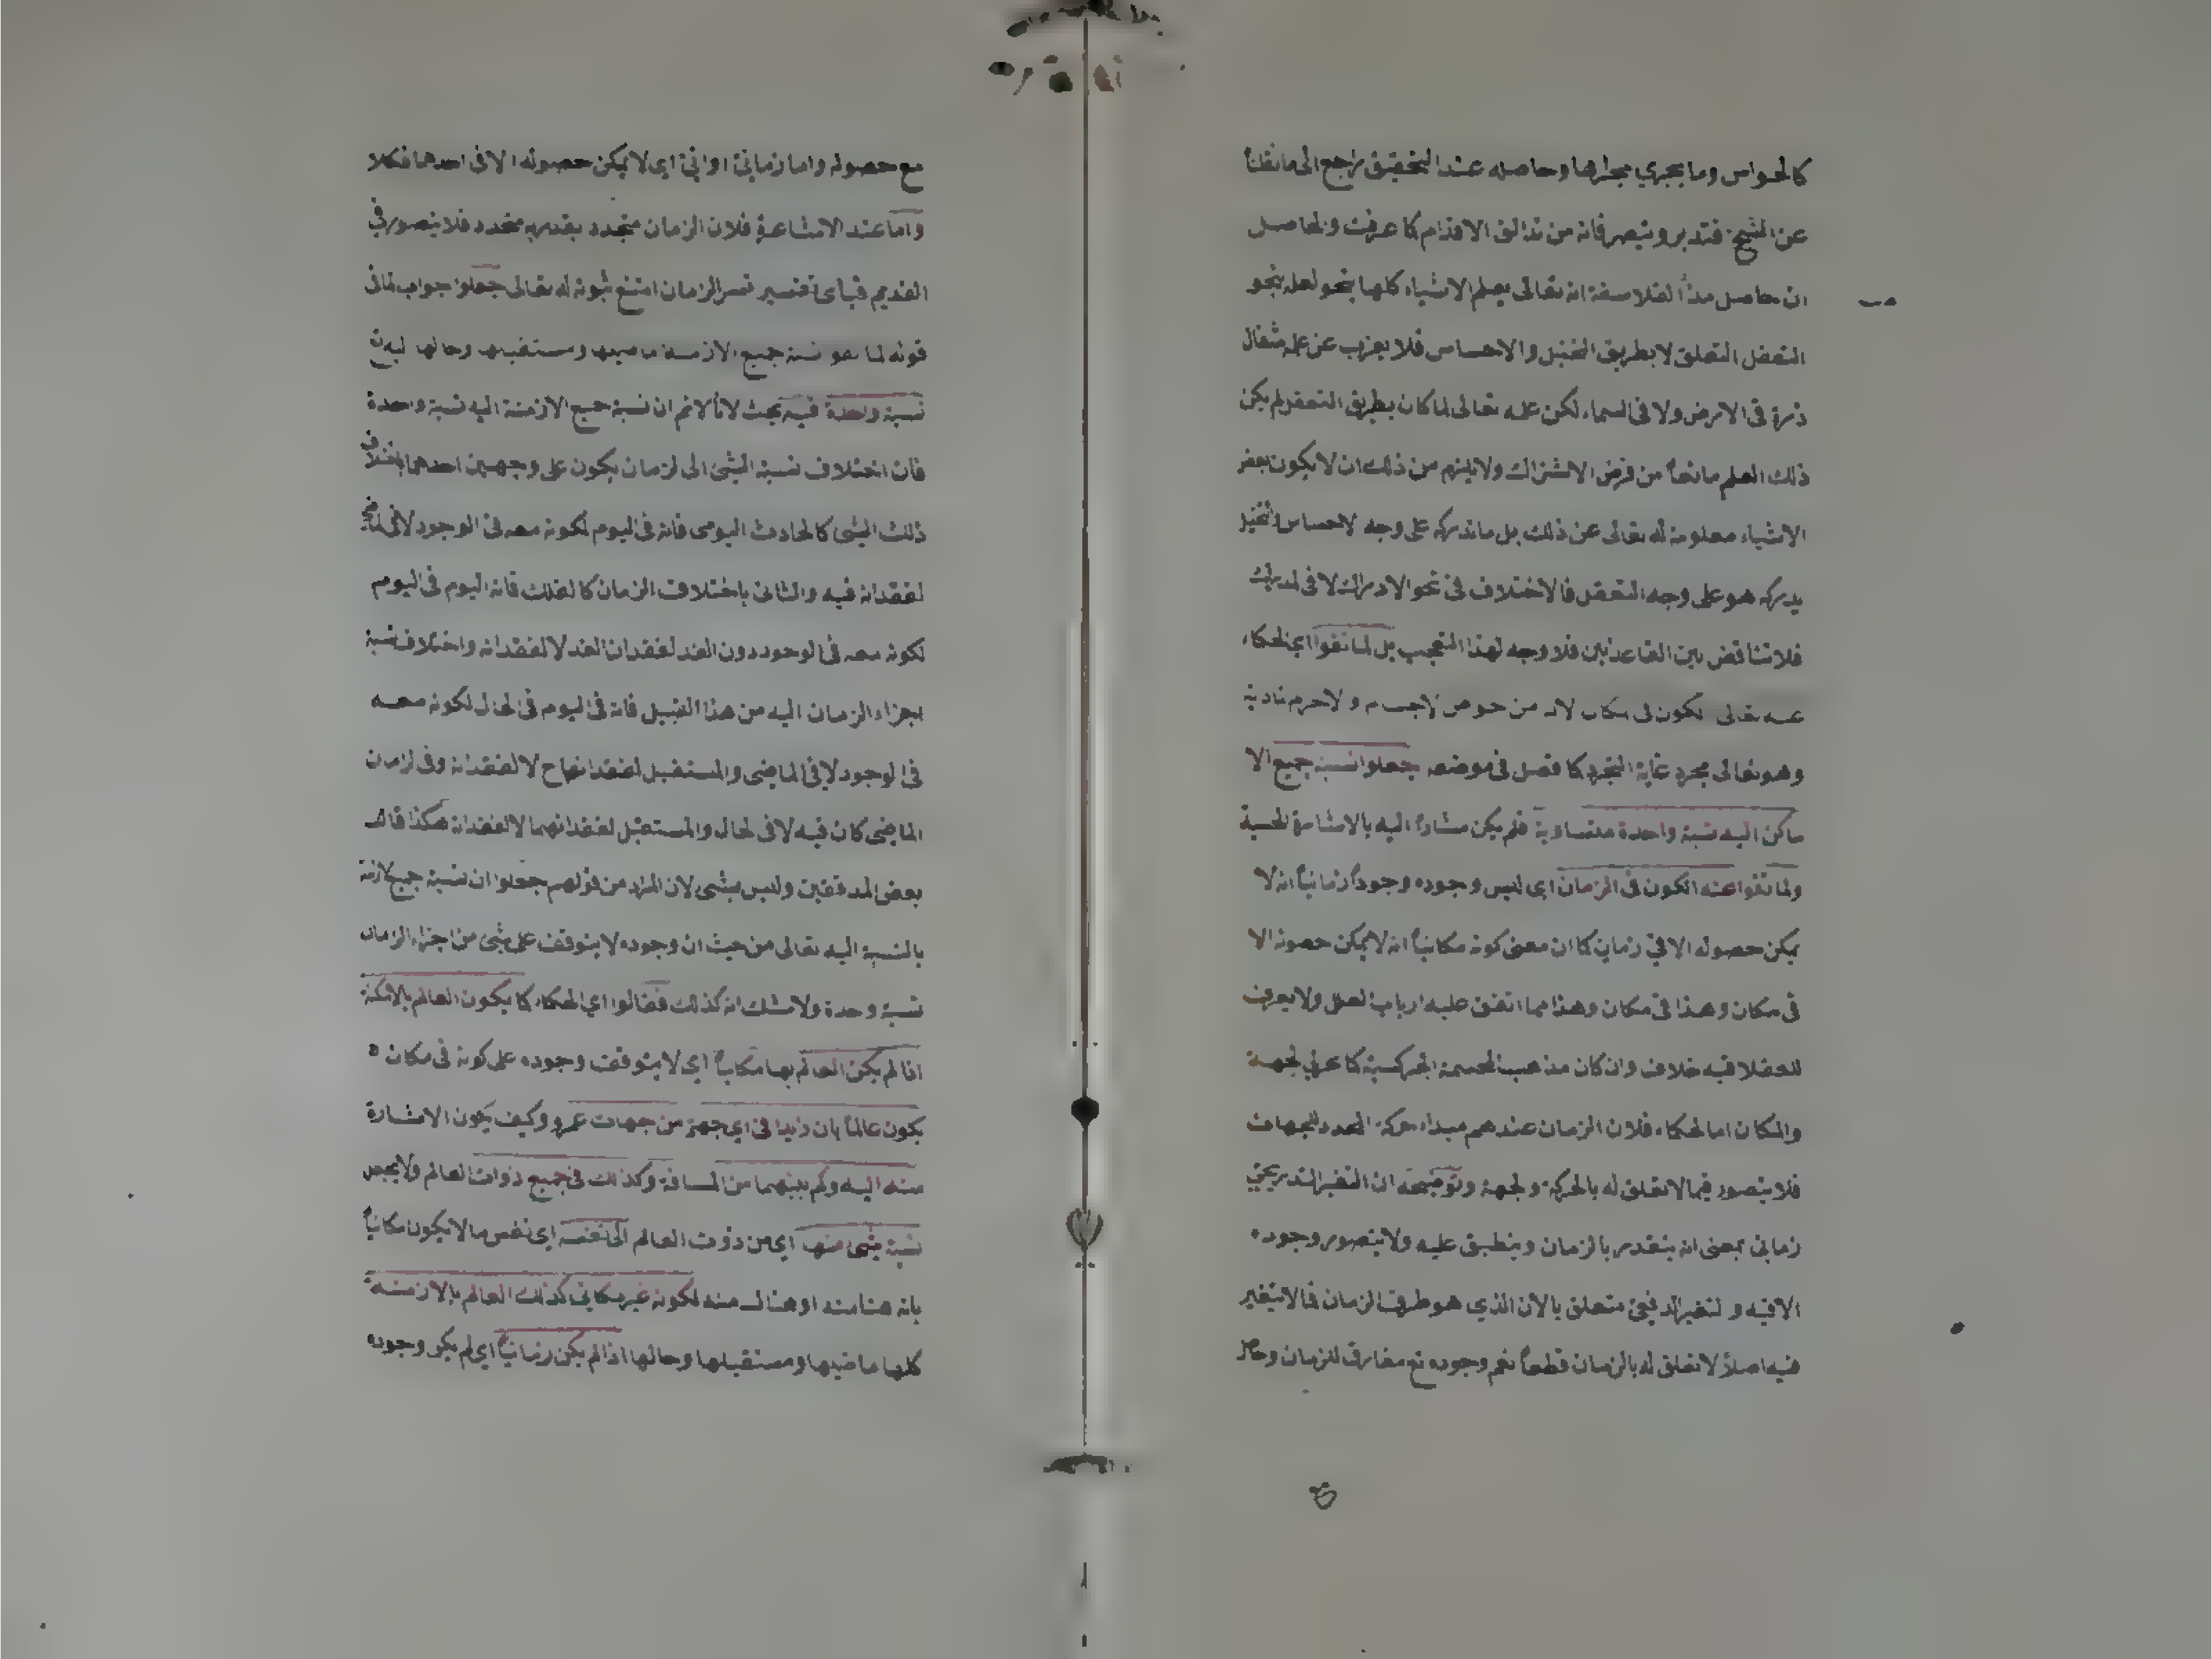 كالحواس وما يجري مجراها وحاصله عند التحقيق راجع الى ما نقلنا
عن الشيخ فتدبر وتبصر فانه من مزالق الاقدام كما عرفت والحاصل
ان حاصل مذهب الفلاسفة انه تعالى يعلم الاشياء كلها بنحو
التعقل لا بطريق التخيل والاحساس فلا يعزب عن علمه مثقال
ذرة في الارض ولا في السماء لكن علمه تعالى لما كان بطريق التعقل لم يكن
ذلك العلم مانعا من فرض الاشتراك ولا يلزم من ذلك ان لا يكون بعض
الاشياء معلومة له تعالى عن ذلك بل ما ندركه على وجه الاحساس والتخيل
يدركه هو على وجه التعقل فالاختلاف في نحو الادراك لا في المدرك
فلا تناقض بين القاعدتين فلا وجه لهذا التعجب بل لما نفوا اي الحكماء
عنه تعالى الكون في مكان لانه من خواص الاجسام والاجرام المادية
وهو تعالى مجرد غاية التجرد كما فصل في موضعه جعلوا نسبة جميع الا
ماكن اليه نسبة واحدة متساوية فلم يكن مشارا اليه بالاشارة الحسية
ولما نفوا عنه الكون في الزمان اي ليس وجوده وجودا زمانيا انه لا
يمكن حصوله الا في زمان كما ان معنى كونه مكانيا انه لا يمكن حصوله الا
في مكان وهذا في مكان وهذا مما اتفق عليه ارباب الملل ولا يعرف
للعقلا فيه خلاف وان كان مذهب المجسمة الجهة
والمكان اما الحكماء فلان الزمان عندهم مبداء حركة المحدد للجهات
فلا يتصور فيما لا تعلق له بالحركة والجهة وتوضيحه ان التغير التدريجي
زماني بمعنى انه يتقدر بالزمان وينطبق عليه ولا يتصور وجوده
الا فيه والتغير الدفعي متعلق بالآن الذي هو طرف الزمان فما لا تغير
فيه اصلا لا تعلق له بالزمان قطعا نعم وجوده تع مقارن للزمان وحاصل
مع حصوله واما زمانيا او انيا اي لا يمكن حصوله الا في احدهما فكلا
واما عند الاشاعرة فلان الزمان متجدد يقدر به متجدد فلا يتصور في
القديم فباى تفسير فسر الزمان امتنع ثبوته له تعالى جعلوا جواب لما في
قوله لما نفوا نسبة جميع الازمنة ماضيها ومستقبلها وحالها اليه
نسبة واحدة فيه بحث لانا لا نم ان نسبة جميع الازمنة اليه نسبة واحدة
فان اختلاف نسبة الشئ الى الزمان يكون على وجهين احدهما باختلاف
ذلك الشئ كالحادث اليومى فانه في اليوم لكونه معه في الوجود لا في الماضي
لفقدانه فيه والثاني باختلاف الزمان كالفلك فانه اليوم في اليوم
لكونه معه في الوجود دون الغد لفقدان الغد لا لفقدانه واختلاف نسبة
اجزاء الزمان اليه من هذا القبيل فانه في اليوم في الحال لكونه معه
في الوجود لا في الماضي والمستقبل لفقدانهما ح لا لفقدانه وفي الزمان
الماضي كان فيه لا في الحال والمستقبل لفقدانهما لا لفقدانه هكذا قال
بعض المدققين وليس بشئ لان المراد من قولهم جعلوا ان نسبة جميع الازمنة
بالنسبة اليه تعالى من حيث ان وجوده لا يتوقف على شئ من اجزاء الزمان
نسبة واحدة ولا شك انه كذلك فقالوا اي الحكماء كما يكون العالم بالامكنة
اذا لم يكن العالم بها مكانيا اي لا يتوقف وجوده على كونه في مكان
يكون عالما بان زيدا في اي جهة من جهات عمرو وكيف يكون الاشارة
منه اليه وكم بينهما من المسافة وكذلك في جميع ذوات العالم ولا يجعل
نسبة شئ منها اي من ذوات العالم الى نفسه اي نفس ما لا يكون مكانيا
بانه هنا منه او هناك منه لكونه غير مكاني كذلك العالم بالازمنة
كلها ماضيها ومستقبلها وحالها اذا لم يكن زمانيا اي لم يكن وجوده